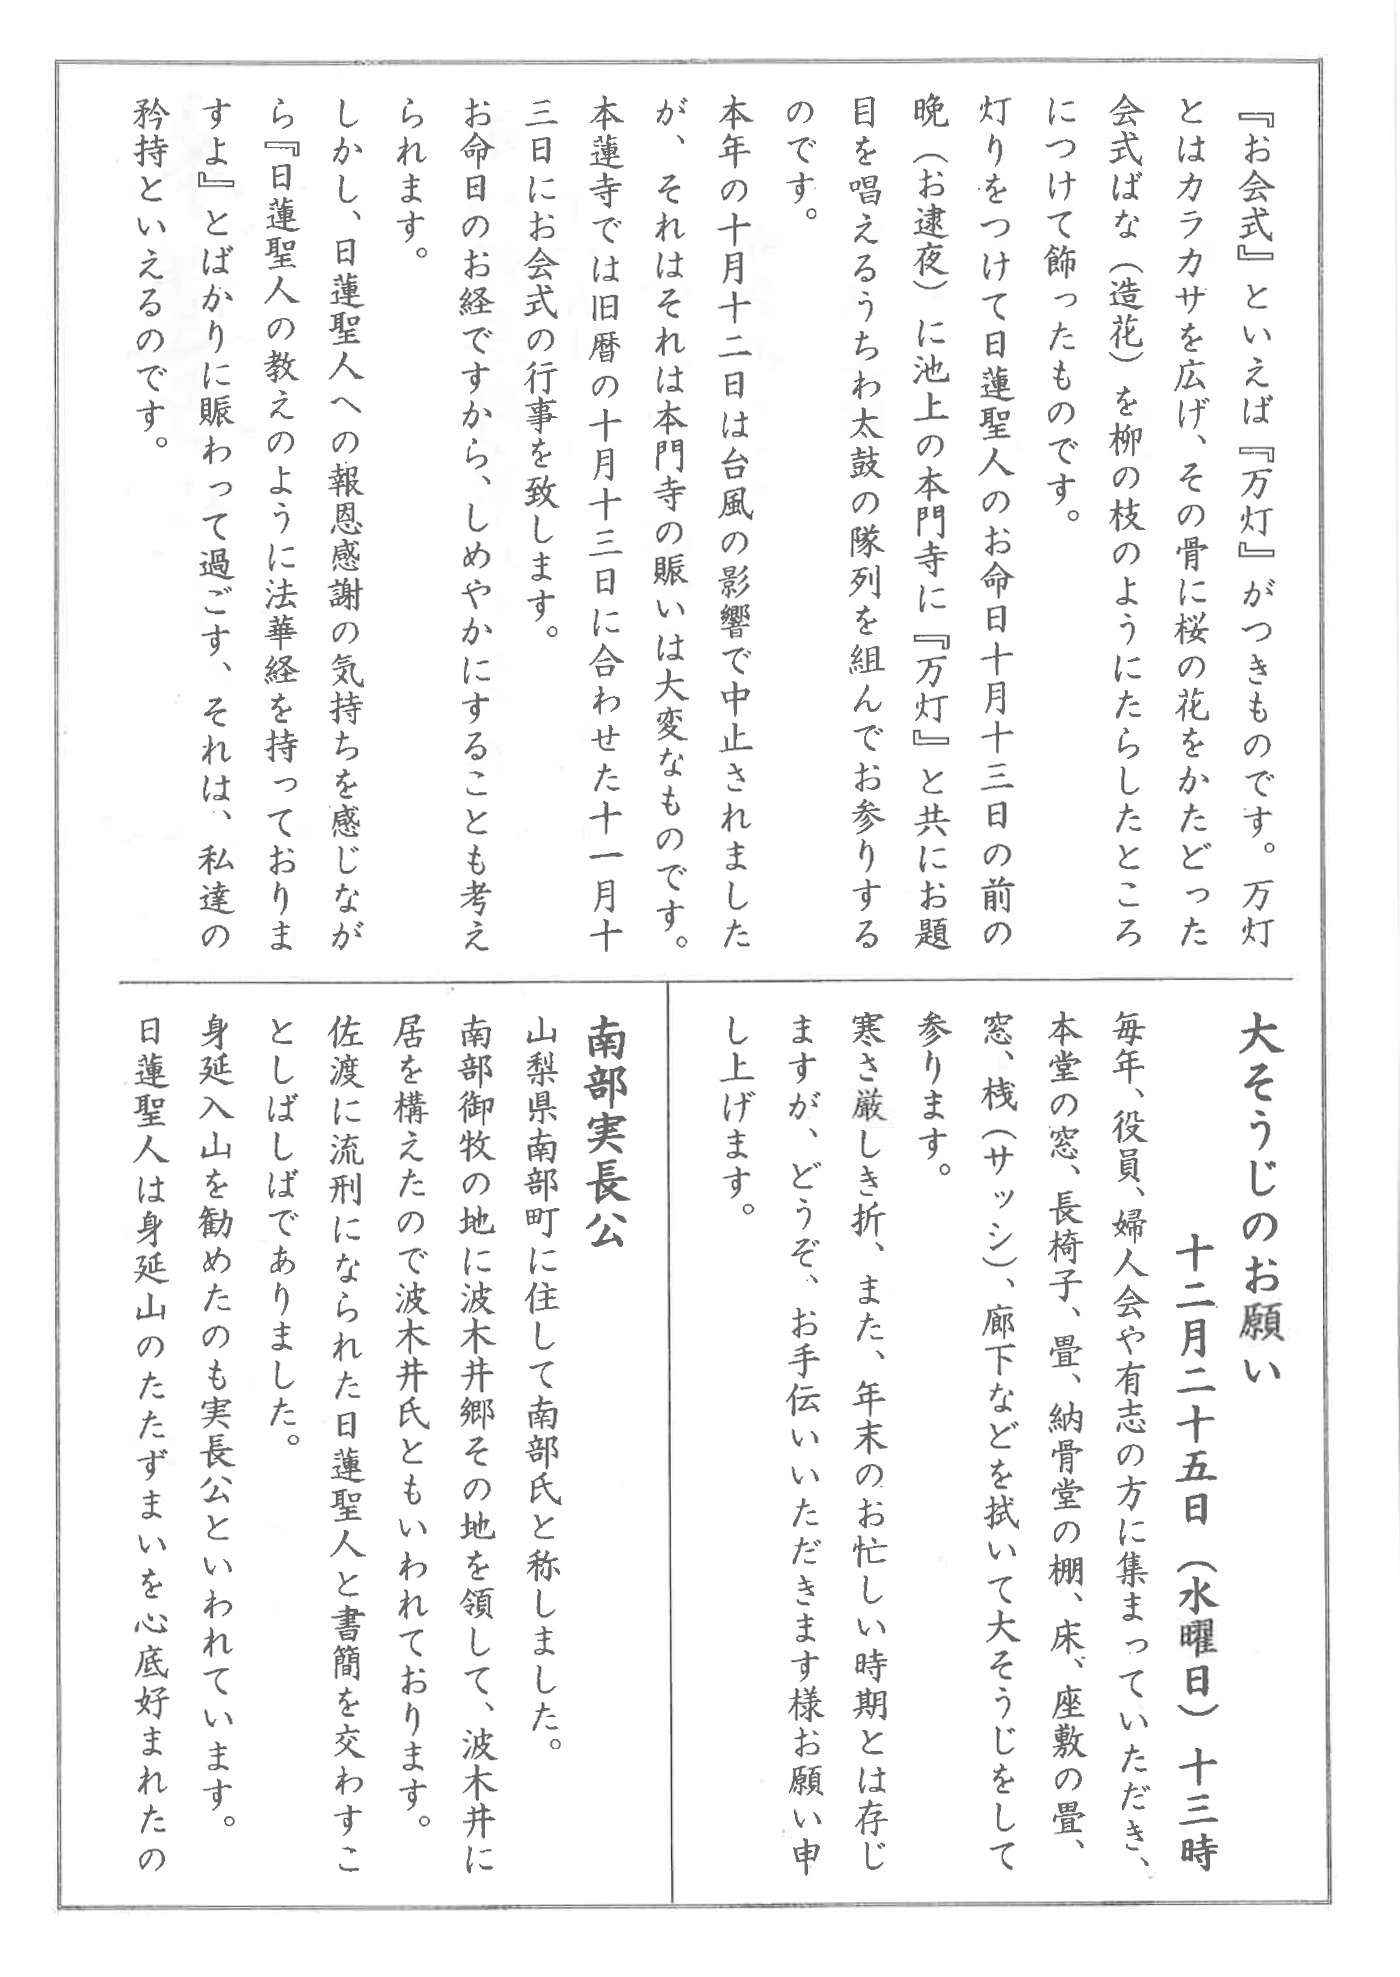 『お会式』といえば『万灯』がつきものです。万灯
とはカラカサを広げ、その骨に桜の花をかたどった
会式ばな（造花）を柳の枝のようにたらしたところ
につけて飾ったものです。
灯りをつけて日蓮聖人のお命日十月十三日の前の
晩（お逮夜）に池上の本門寺に『万灯』と共にお題
目を唱えるうちわ太鼓の隊列を組んでお参りする
のです。
本年の十月十二日は台風の影響で中止されました
が、それはそれは本門寺の賑いは大変なものです。
本蓮寺では旧暦の十月十三日に合わせた十一月十
三日にお会式の行事を致します。
お命日のお経ですから、しめやかにすることも考え
られます。
しかし、日蓮聖人への報恩感謝の気持ちを感じなが
ら『日蓮聖人の教えのように法華経を持っておりま
すよ』とばかりに賑わって過ごす、それは、私達の
矜持といえるのです。
大そうじのお願い
十二月二十五日（水曜日）十三時
毎年、役員、婦人会や有志の方に集まっていただき、
本堂の窓、長椅子、畳、納骨堂の棚、床、座敷の畳、
窓、桟（サッシ）、廊下などを拭いて大そうじをして
参ります。
寒さ厳しき折、また、年末のお忙しい時期とは存じ
ますが、どうぞ、お手伝いいただきます様お願い申
し上げます。
南部実長公
山梨県南部町に住して南部氏と称しました。
南部御牧の地に波木井郷その地を領して、波木井に
居を構えたので波木井氏ともいわれております。
佐渡に流刑になられた日蓮聖人と書簡を交わすこ
としばしばでありました。
身延入山を勧めたのも実長公といわれています。
日蓮聖人は身延山のたたずまいを心底好まれたの